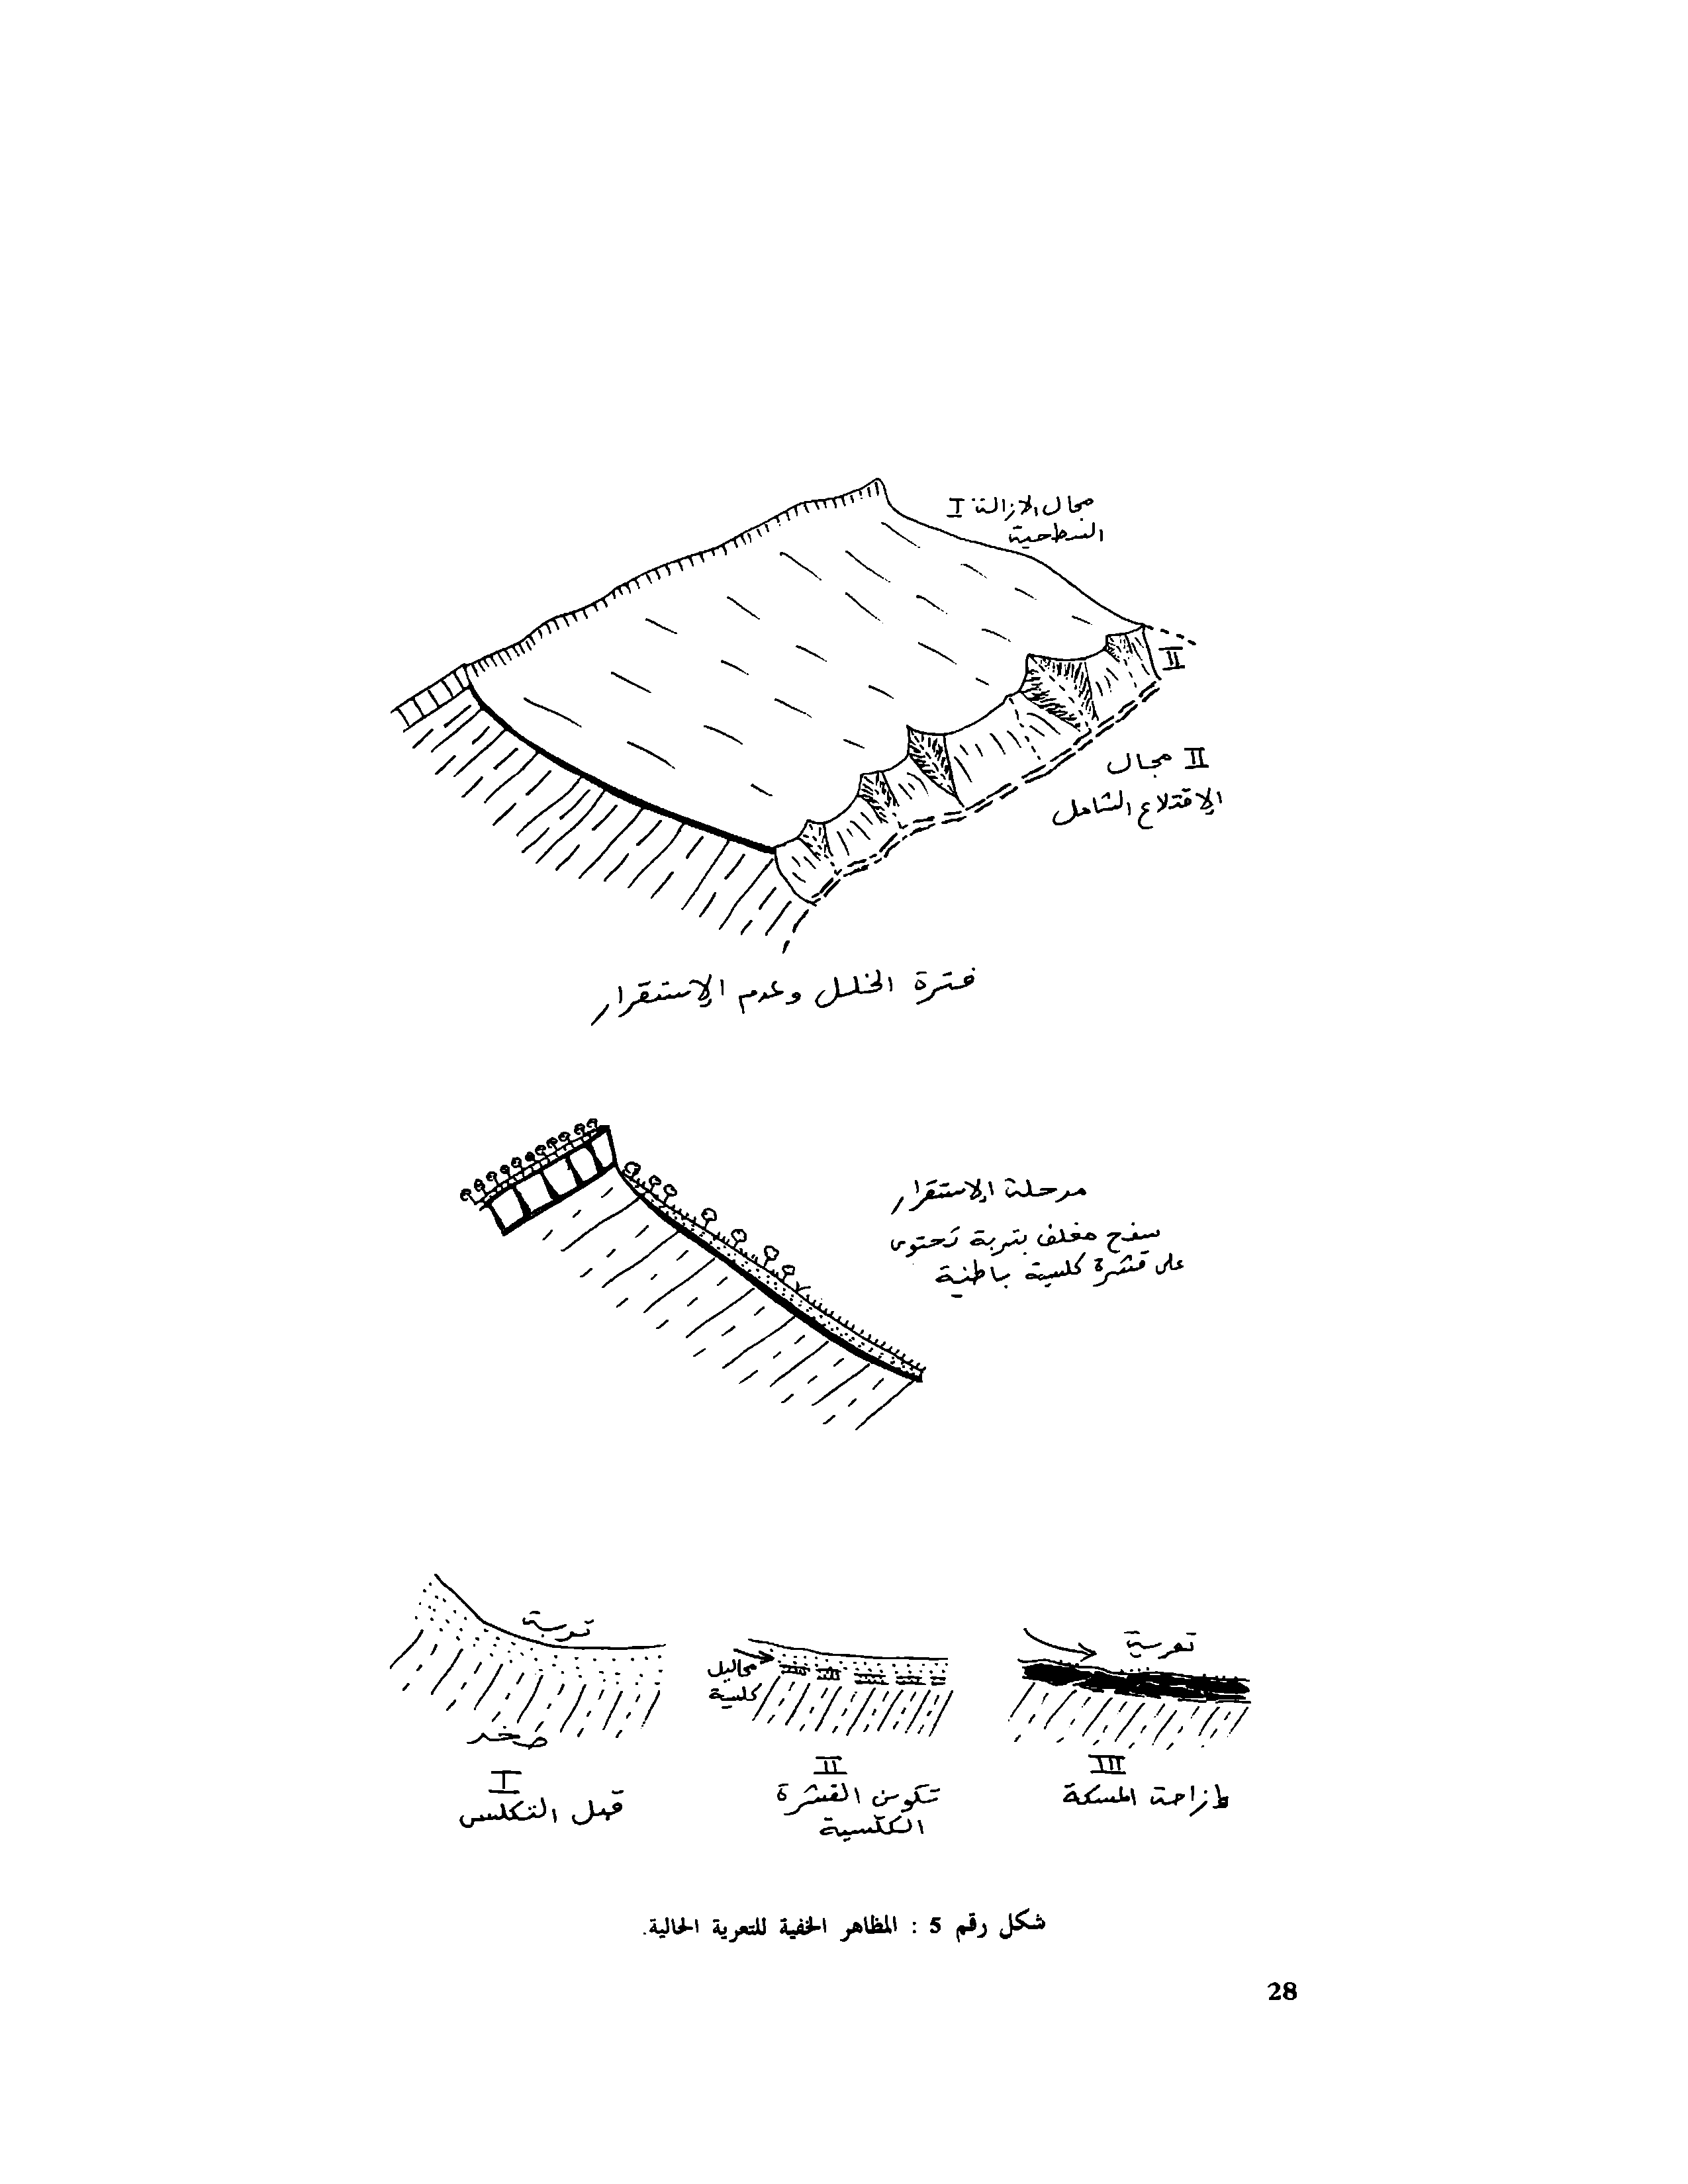 I مجال الازالة
السطحية
II
II مجال
الإقتلاع الشامل
فترة الخلل وعدم الإستقرار
مرحلة الإستقرار
سفح مغلف بتربة تحتوى
على قشرة كلسية باطنية
تربة
صخر
I
قبل التكلس
محاليل
كلسية
II
تكون القشرة
الكلسية
تعرية
III
إزاحة المسكة
شكل رقم 5 : المظاهر الخفية للتعرية الحالية.
28